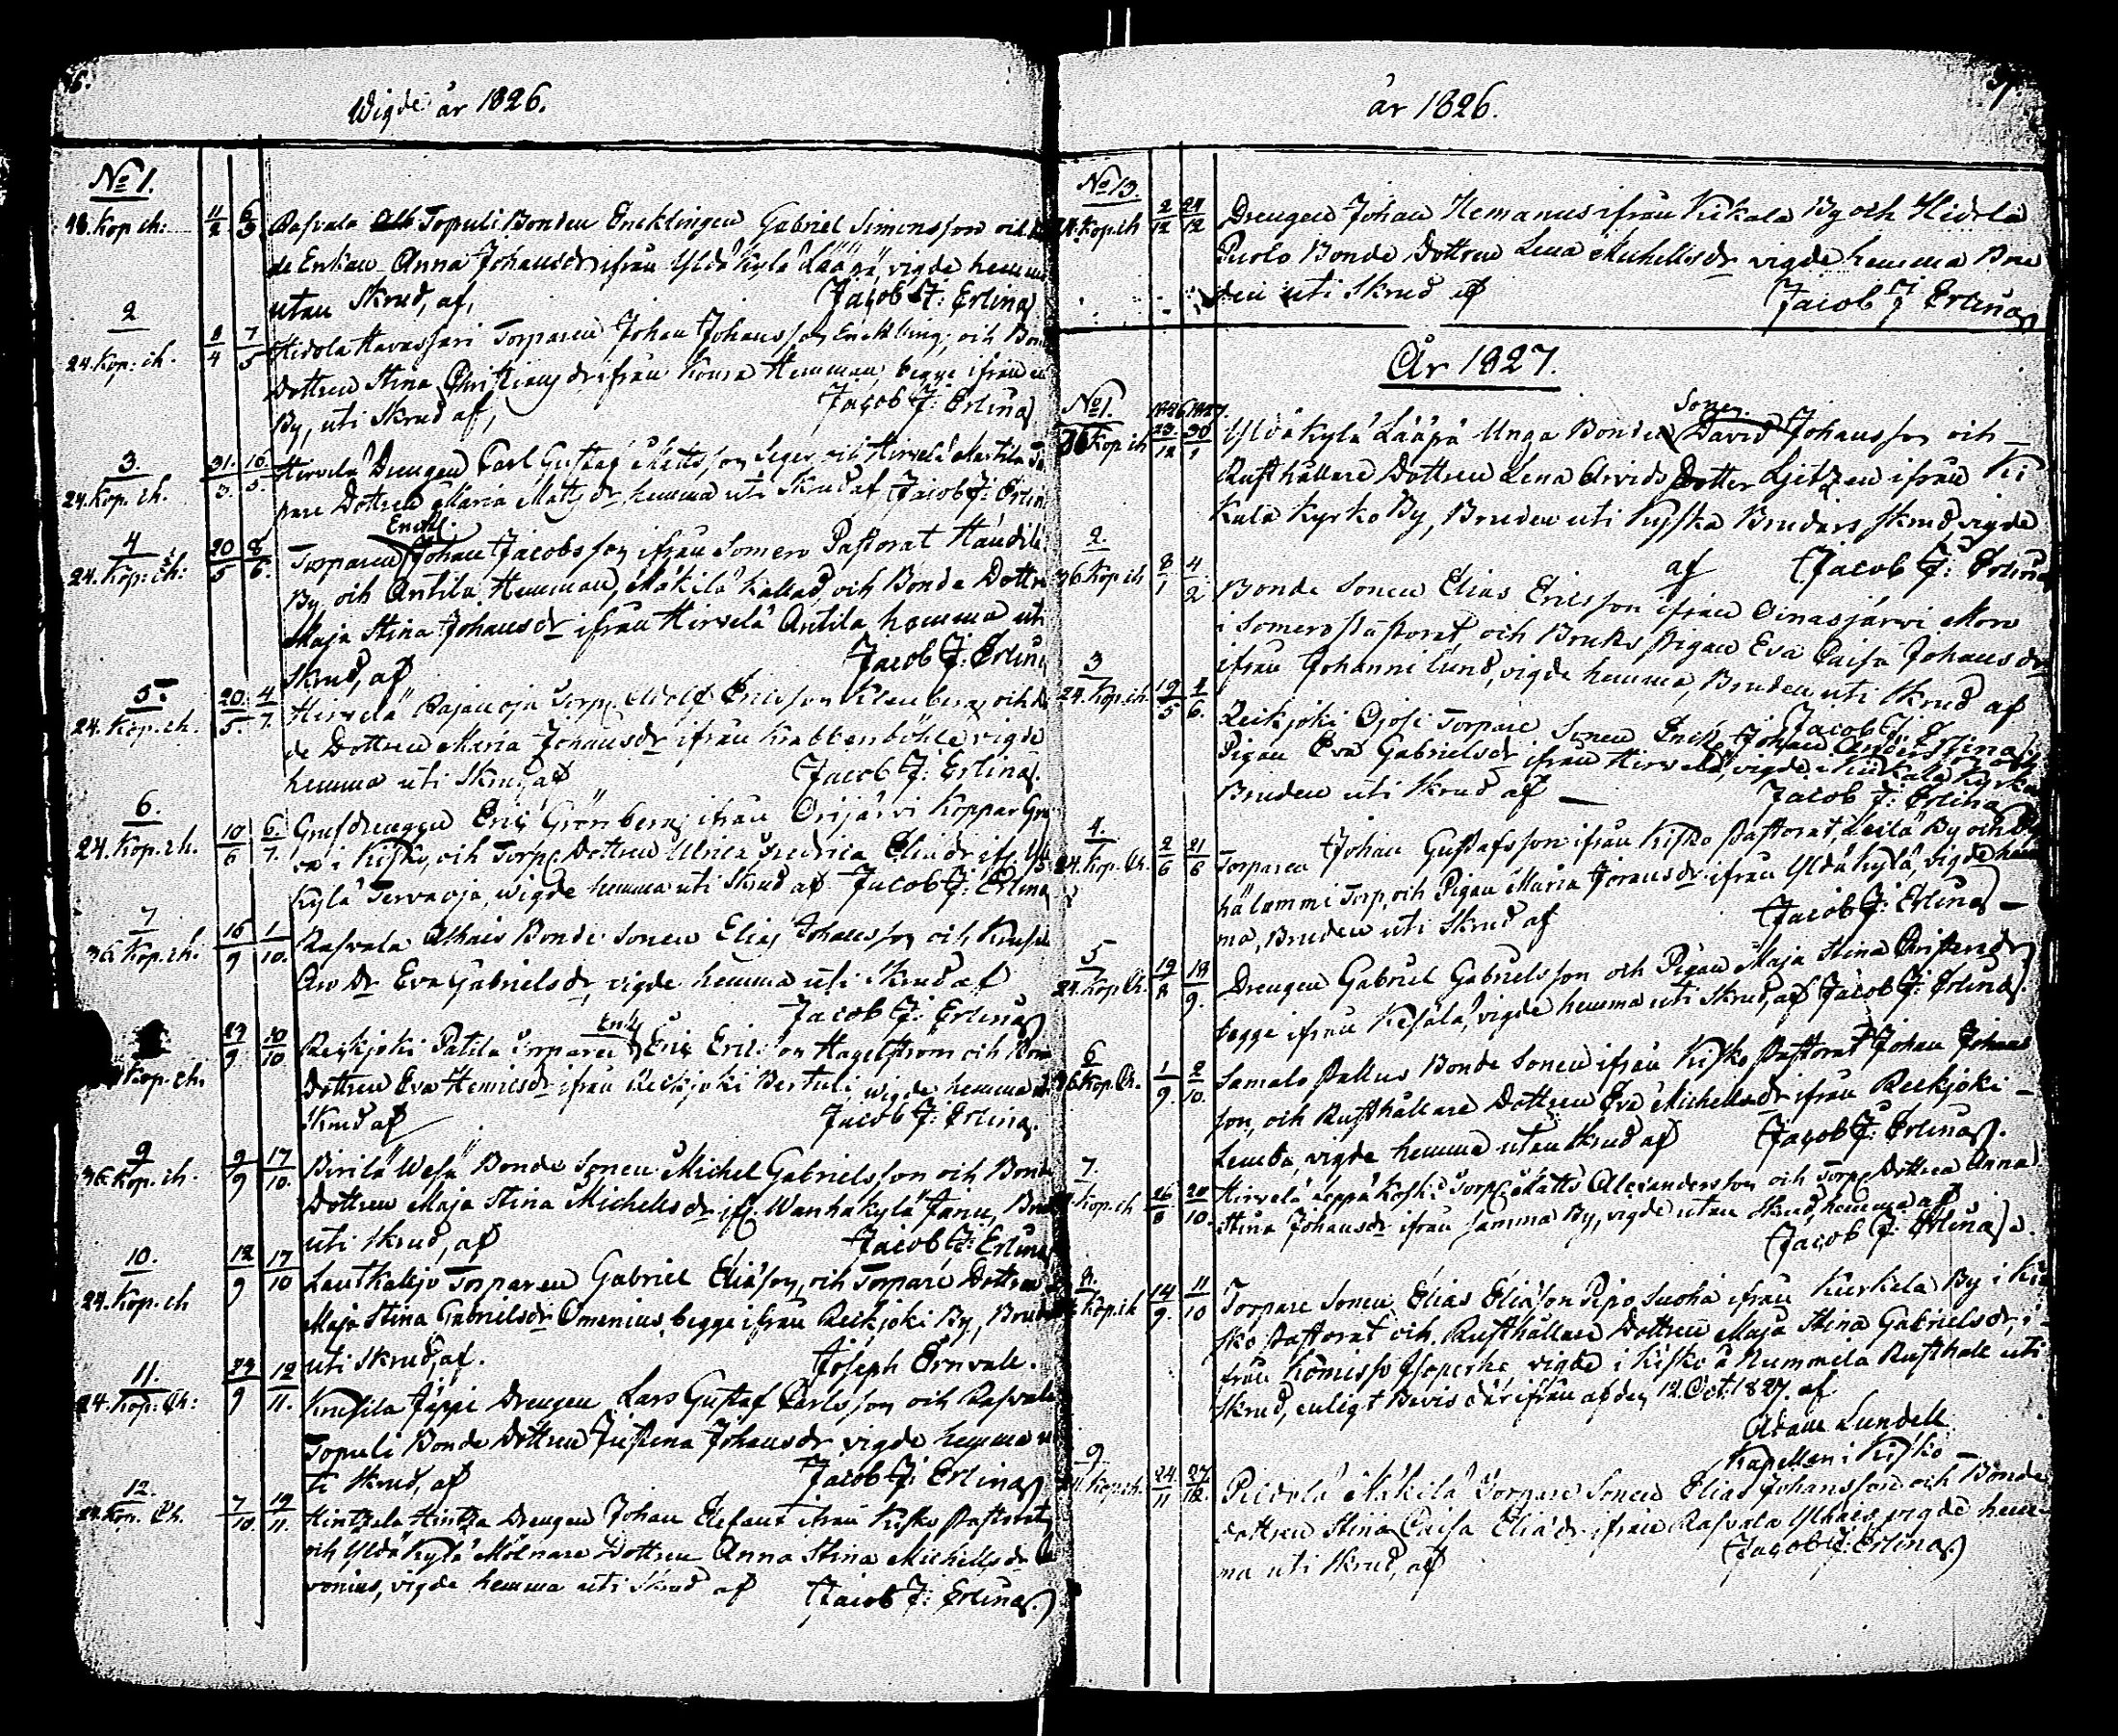 Wigde år 1826.
No 1.
48. Kop ch: 11/2 6/3 Rasvala Topuli Bonden Encklingen Gabriel Simonsson och
de Enkan Anna Johansdr ifrån Yldäkylä Lääpä, vigde hemma
utan Skrud, af, Jacob J: Erling
2
24. Kop: ch. 8/4 7/5 Hidola Havassari Torparen Johan Johansson Enckling, och
Dottren Stina Christiansdr ifrån Housa Hemman, begge ifrån
By, uti Skrud af, Jacob J: Erling
3.
24. Kop. ch. 31/3. 15/5. Hirvelä Drengen Carl Gustaf Mattsson Seger och Hirvelä Martila
pare Dottren Maria Mattsdr, hemma uti Skrud af Jacob J: Erling
4
24. Kop: ch: 20/5 8/6. Torparen Enckl. Johan Jacobsson ifrån Somero Pastorat
By, och Antila Hemman, Mäkilä kallad, och Bonde Dottren
Maja Stina Johansdr ifrån Hirvelä Antila hemma uti
Skrud, af Jacob J: Erling
5.
24. Kop. ch. 20/5. 4/7. Hirvelä Rajanoja Torp. Adolf Ericsson och
de Dottren Maria Johansdr ifrån Krabbenböhle vigde
hemma uti Skrud af Jacob J: Erling.
6.
24. Kop. ch. 10/6 6/7. Grufdrengen Eric Grönberg ifrån Orijärvi Koppar
va i Kisko, och Torp. Dottren Ulrica Fredrica Eliädr
Kylä Tervaoja, wigde hemma uti Skrud af Jacob J: Erling
7
36 Kop. ch. 16/9 1/10. Rasvala Alhais Bonde Sonen Elias Johansson och
Eva Gabrielsdr, vigde hemma uti Skrud af
Jacob J: Erling
Kop. ch. 10/10 Reikjoki Patila Torparen Enkl Eric Ericsson Hagelström och
Dottren Eva Henricsdr ifrån Reikjoki Bertuli wigde hemma
Skrud af Jacob J: Erling.
9
36 Kop. ch. 9/9 17/10. Birilä Wesä Bonde Sonen Michel Gabrielsson och Bonde
Dottren Maja Stina Michelsdr if. Wanhakylä
uti Skrud, af Jacob J: Erling
10.
24. Kop. ch 12/9 17/10 Torparen Gabriel Eliäson, och Torpare Dottren
Maja Stina Gabrielsdr Omenius, begge ifrån Reikjoki By,
uti Skrud, af. Joseph Ernvale.
11.
24. Kop: Ch: 24/9 12/11. Krusila Jäppi Drengen Lars Gustaf Carlsson och Rasvala
Topuli Bonde Dottren Justina Johansdr vigde hemma
ti Skrud, af Jacob J: Erling
12.
24. Kop. Ch. 7/10. 19/11. Hintzala Hintza Drengen Johan Elefant ifrån Kisko Pastorat,
och Yldäkylä Mölnare Dottren Anna Stina Michelsdr
vonius, vigde hemma uti Skrud af Jacob J: Erling.
år 1826.
No 13.
Kop. ch 2/12 24/12 Drengen Johan Hemanus ifrån Kikala By och Hidola
Bonde Dottren Lena Michelsdr vigde hemma Bru
den uti Skrud af Jacob J Erling
År 1827.
No 1. 1826. 1827.
36 Kop ch 23/12 30/1 Yldäkylä Lääpä Unga Bonde Sonen David Johansson och
Rusthållare Dottren Lena Arvids Dotter Ljetzen ifrån Ki
kala Kyrko By, Bruden uti Kyska Brudars Skrud, vigde
af Jacob J: Erling
2.
36 Kop ch 8/1 4/2 Bonde Sonen Elias Ericsson ifrån Oinasjärvi
i Somero Pastorat, och Bruks Pigan Eva Caisa Johansdr
ifrån Johannislund, vigde hemma, Bruden uti Skrud af
Jacob J: Erling
3
24. Kop. ch. 19/5 4/6. Reikjoki Ojosi Torpare Sonen Johan Andersson och
Pigan Eva Gabrielsdr ifrån Hirvelä, vigde i Kiikala Kyrka
Bruden uti Skrud af — Jacob J: Erling
4.
24. Kop. Ch. 2/6 21/6 Torparen Johan Gustafsson ifrån Kisko Pastorat, Leilä By och
hälammi Torp, och Pigan Maria Göransdr ifrån Yldäkylä, vigde hem
ma, Bruden uti Skrud af Jacob J: Erling —
5
24. Kop Ch. 19/8 18/9. Drengen Gabriel Gabrielsson och Pigan Maja Stina
begge ifrån Kesälä, vigde hemma uti Skrud, af Jacob J: Erling.
6
36 Kop. Ch. 1/9. 2/10. Samalo Pallus Bonde Sonen ifrån Kisko Pastorat Johan Johans
son, och Rusthållare Dottren Eva Michelsdr ifrån Reikjoki —
Lemba, vigde hemma utan Skrud af Jacob J: Erling.
7.
Kop. ch 26/8 20/10. Hirvelä Leppäkoski Torp. Matts Alexandersson och Torp. Dottren Anna
Stina Johansdr ifrån samma By, vigde utan Skrud, hemma af
Jacob J: Erling.
8.
Kop. ch 14/9. 11/10 Torpare Sonen Elias Eliäson Pipo Suoha ifrån Kurkela By i Ki
sko Pastorat och Rusthållare Dottren Maja Stina Gabrielsdr, i
från Komisso Isoperhe, vigde i Kisko å Nummela Rusthåll uti
Skrud, enligt Bevis därifrån af den 12 Oct. 1827. af
Adam Lundell
Kapellan i Kisko —
9
Kop. ch. 24/11 27/12. Mäkilä Torpare Sonen Elias Johansson och Bonde
dottren Stina Caisa Eliädr ifrån Rasvala Ylhais, vigde hem
ma uti Skrud, af Jacob J: Erling